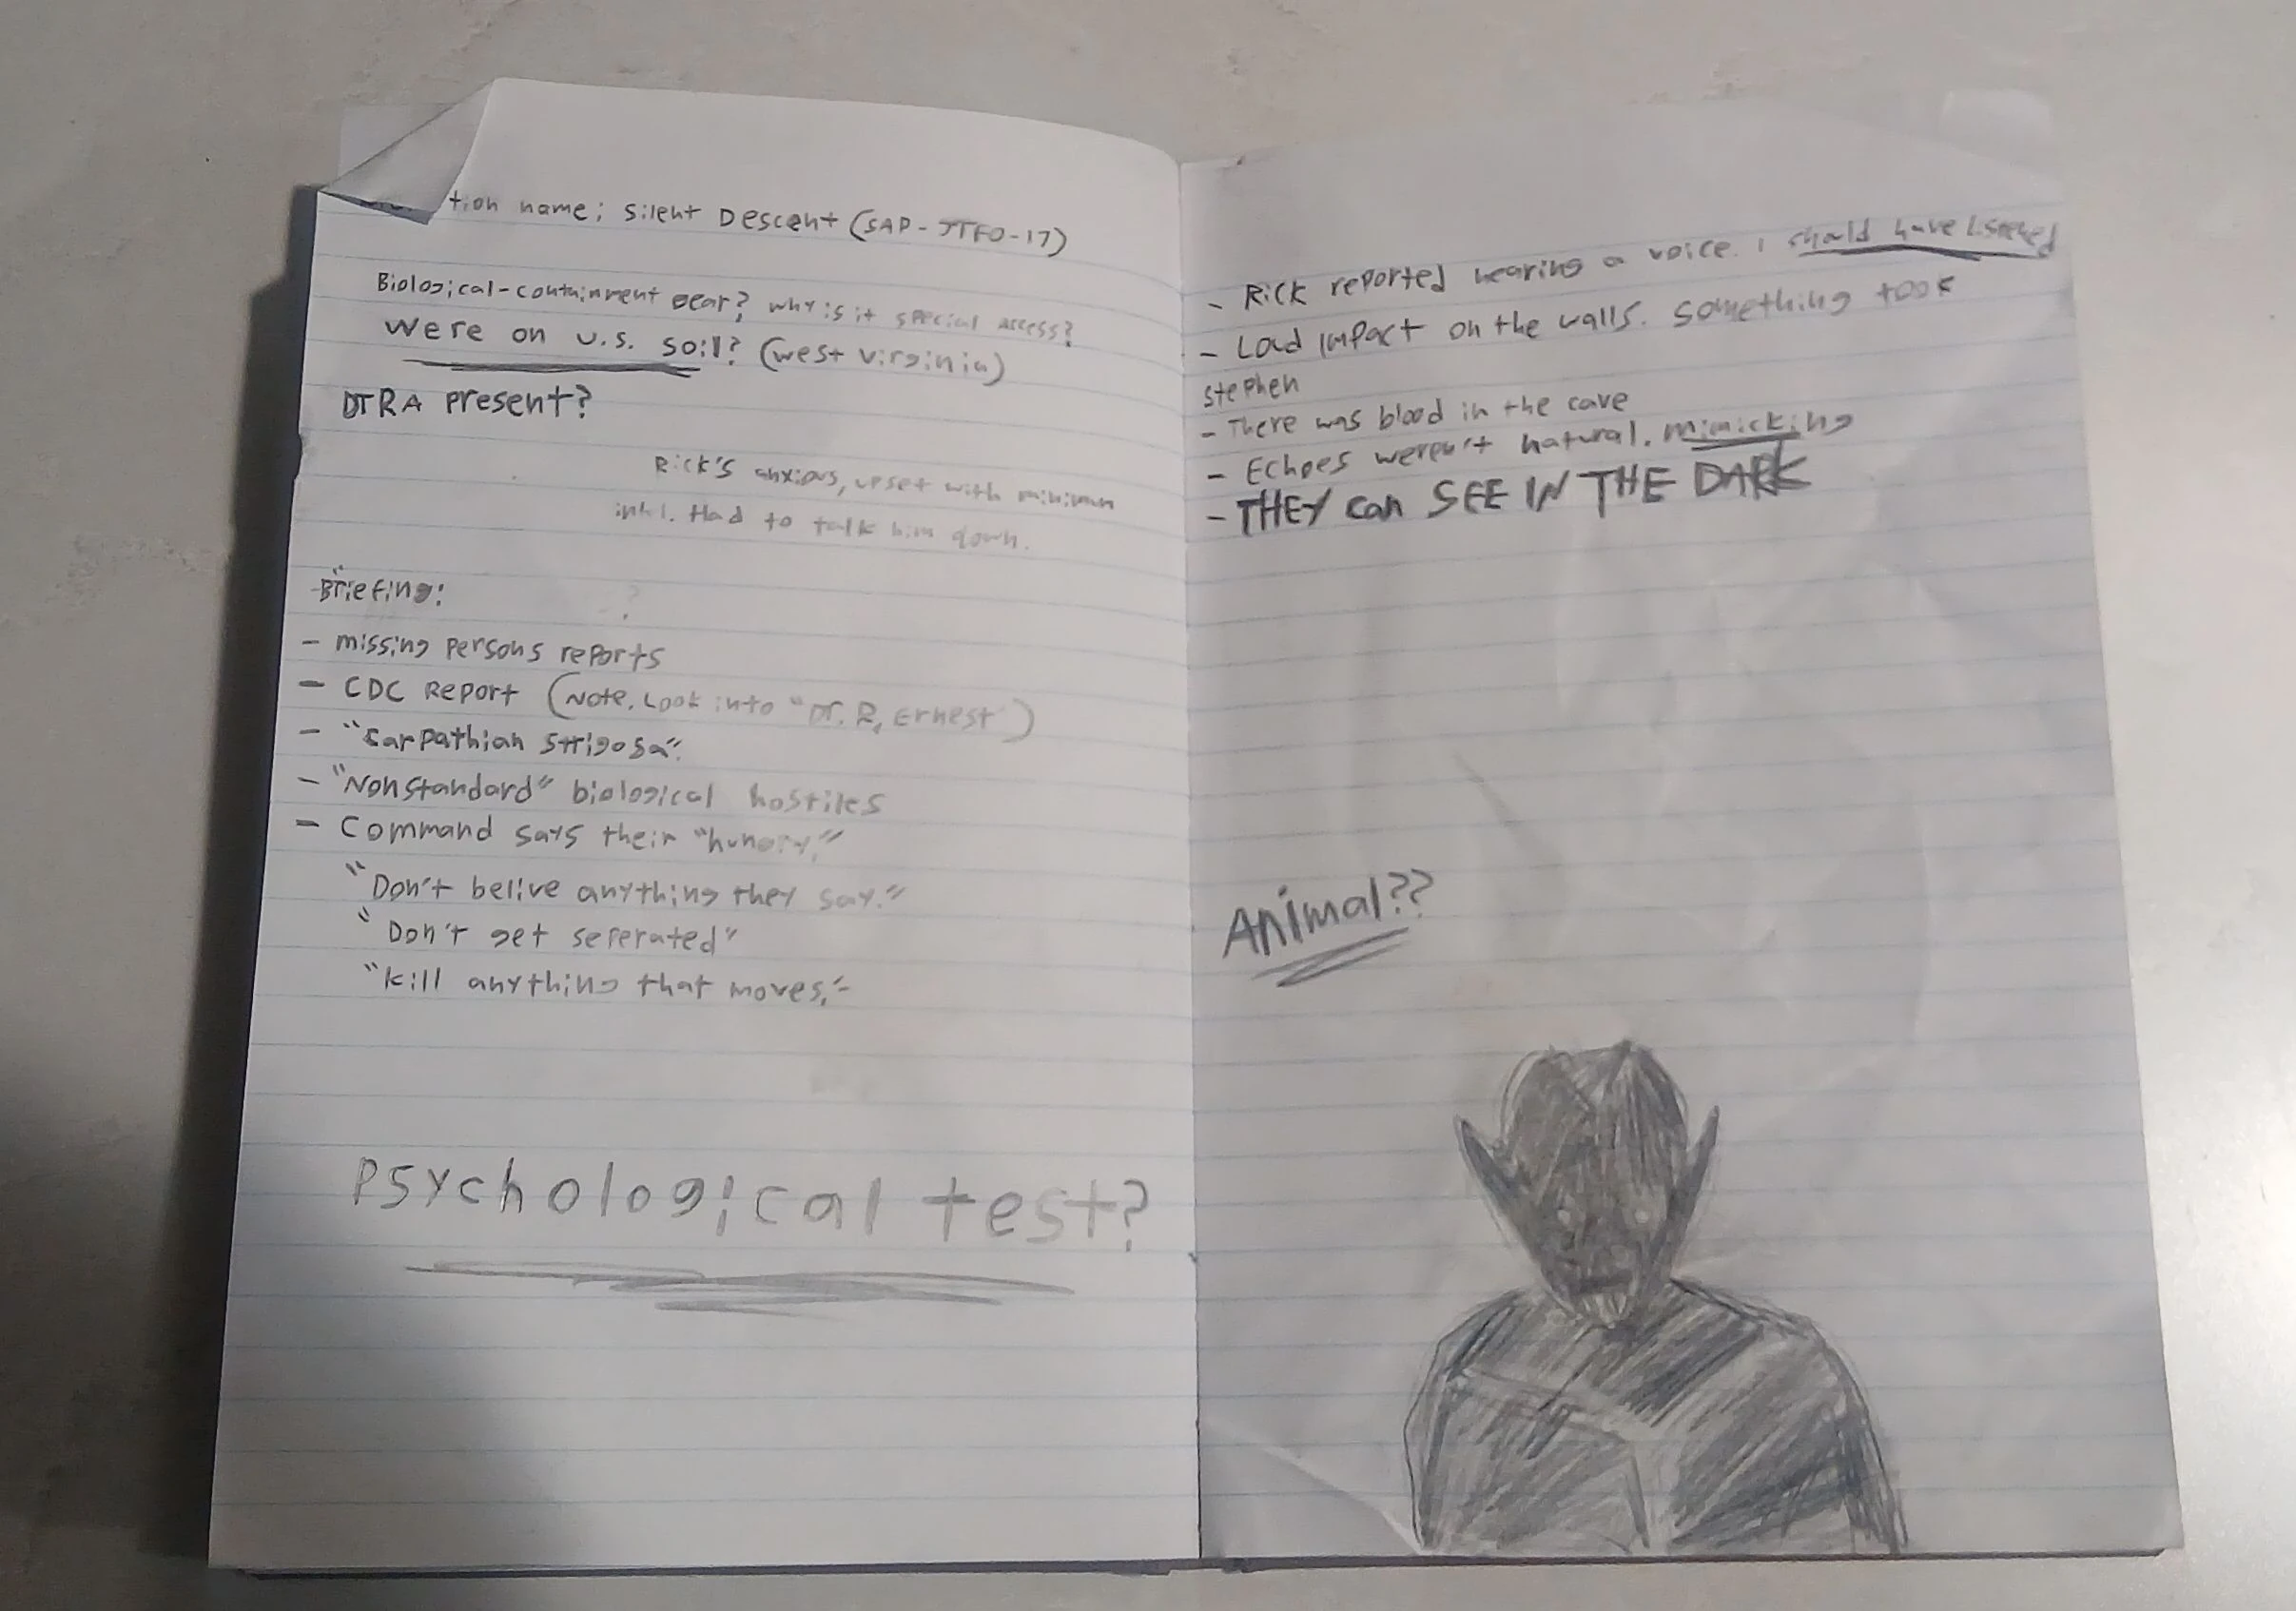 tion name: Silent Descent (SAP-JTFO-17)
Biological-containment gear? why is it special access?
were on U.S. soil? (west virginia)
DTRA Present?
Rick's anxious, upset with minimum
intel. Had to talk him down.
Briefing:
?
- missing persons reports
- CDC Report (Note. Look into "Dr. R, Ernest")
- "Carpathian Strigosa".
- "Nonstandard" biological hostiles
- Command says their "hungry."
"Don't belive anything they say."
"Don't get seperated"
"kill anything that moves."
Psychological test?
- Rick reported hearing a voice. I should have Listened
- Loud impact on the walls. something took
Stephen
- There was blood in the cave
- Echoes weren't natural. mimicking
- THEY can SEE IN THE DARK
Animal??